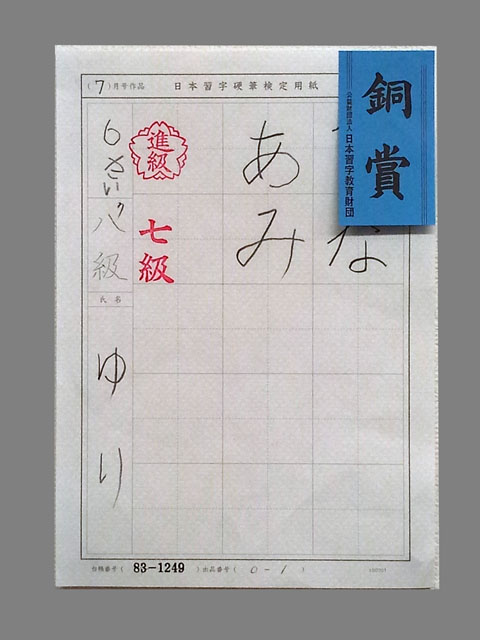 (7)月号作品 日本習字硬筆検定用紙
銅賞
公益財団法人 日本習字教育財団
な
あみ
進級
七級
6さい
八級
氏名
ゆり
番号( 83-1249 )出品番号( 0-1 )